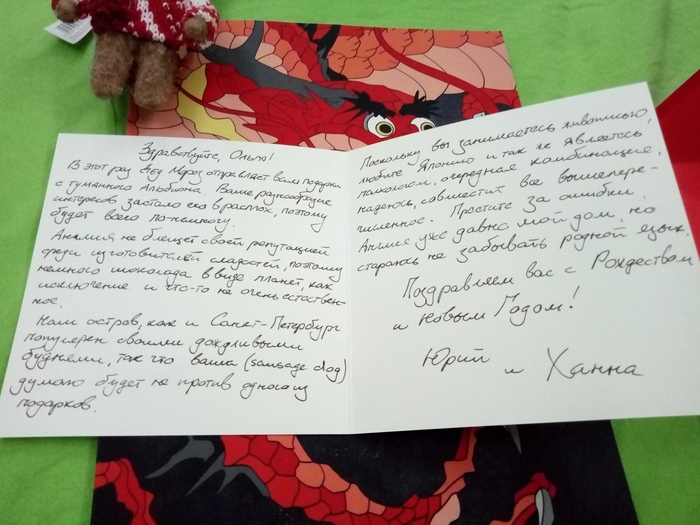 Здравствуйте, Ольга!
В этот раз Дед Мороз отправляет вам подарки
с туманного Альбиона. Ваше разнообразие
интересов застало его в расплох, поэтому
будет всего по-немногу.
Англия не блещет своей репутацией
среди изготовителей сладостей, поэтому
немного шоколада в виде планет, как
исключение и что-то не очень естествен-
ное.
Наш остров, как и Санкт-Петербург
популярен своими дождливыми
буднями, так что ваша (sausage dog)
думаю будет не против одного из
подарков.
Поскольку вы занимаетесь живописью,
любите Японию и так же являетесь
психологом, очередная комбинация,
надеюсь, совместит все вышепере-
численное. Простите за ошибки,
Англия уже давно мой дом, но
стараюсь не забывать родной язык.
Поздравляем вас с Рождеством
и Новым Годом!
Юрий
и Ханна